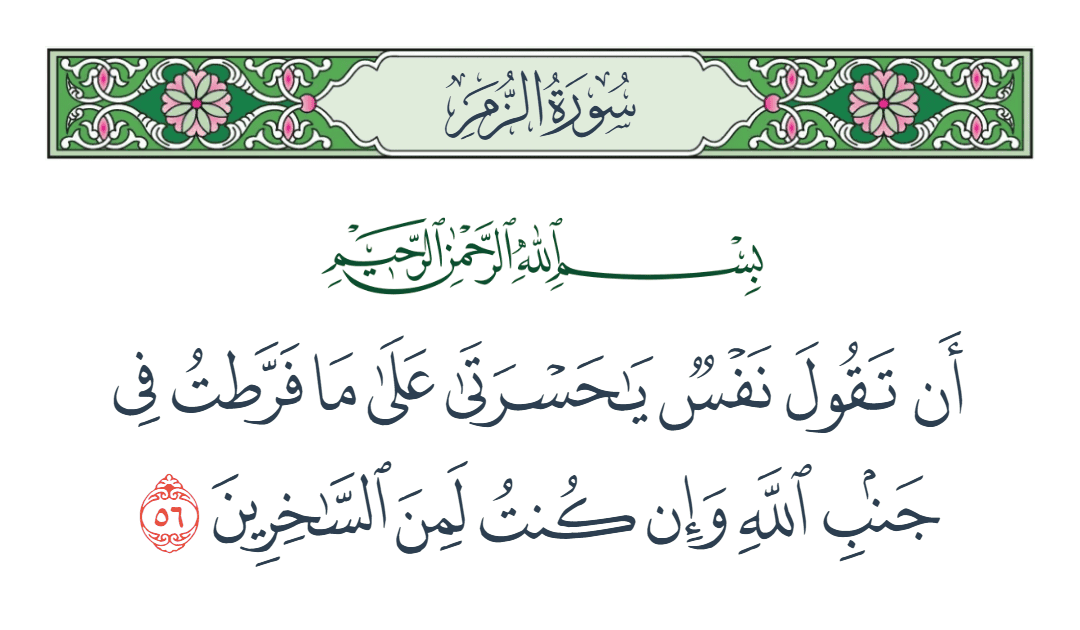 سُورَةُ الزُّمَرِ
بِسْمِ ٱللَّهِ ٱلرَّحْمَٰنِ ٱلرَّحِيمِ
أَن تَقُولَ نَفْسٌ يَٰحَسْرَتَىٰ عَلَىٰ مَا فَرَّطتُ فِى
جَنۢبِ ٱللَّهِ وَإِن كُنتُ لَمِنَ ٱلسَّٰخِرِينَ ٥٦